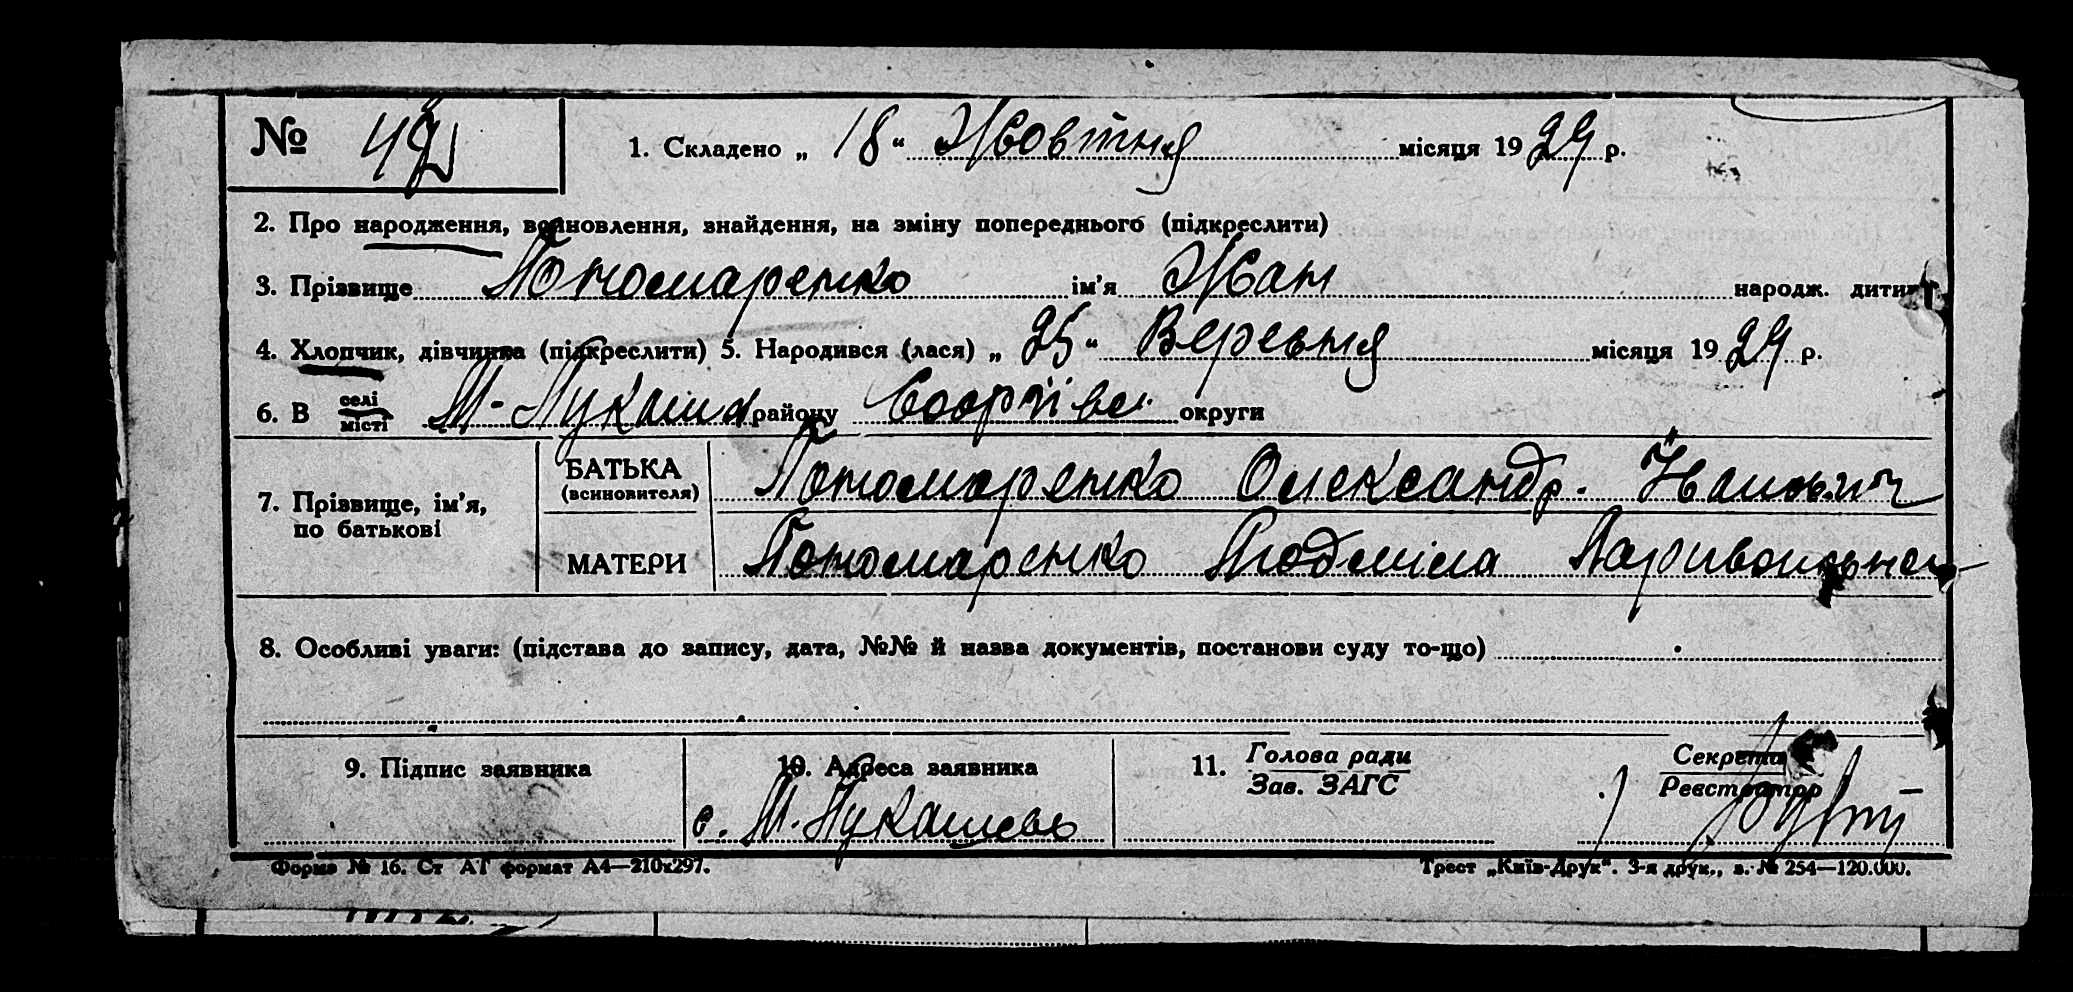 № 49
1. Складено „ 18 “ Жовтня місяця 1929 р.
2. Про народження, всиновлення, знайдення, на зміну попереднього (підкреслити)
3. Прізвище Пономаренко ім'я Жан народж. дитини
4. Хлопчик, дівчинка (підкреслити) 5. Народився (лася) „ 25 “ Вересня місяця 1929 р.
6. В селі місті М-Лукаші району округи
7. Прізвище, ім'я, по батькові
БАТЬКА (всиновителя) Пономаренко Олександр. Іванович
МАТЕРИ Пономаренко Людміла Ларивоновна
8. Особливі уваги: (підстава до запису, дата, №№ й назва документів, постанови суду то-що)
9. Підпис заявника
10. Адреса заявника
с. М. Лукашевь
11. Голова ради
Зав. ЗАГС
Секретар
Реєстратор
Форма № 16. Ст АТ формат А4—210х297.
Трест „Київ-Друк“. 3-я друк., з. № 254—120.000.